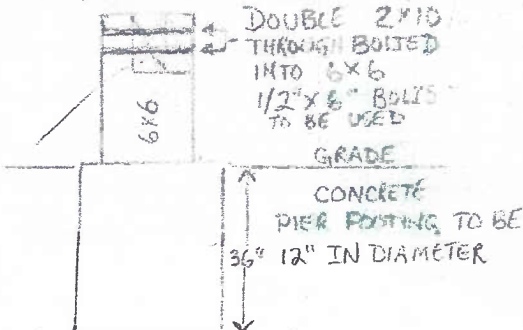 DOUBLE 2X10
THROUGH BOLTED
INTO 6X6
1/2" X 8" BOLTS
TO BE USED
6X6
GRADE
CONCRETE
PIER FOOTING TO BE
36" 12" IN DIAMETER